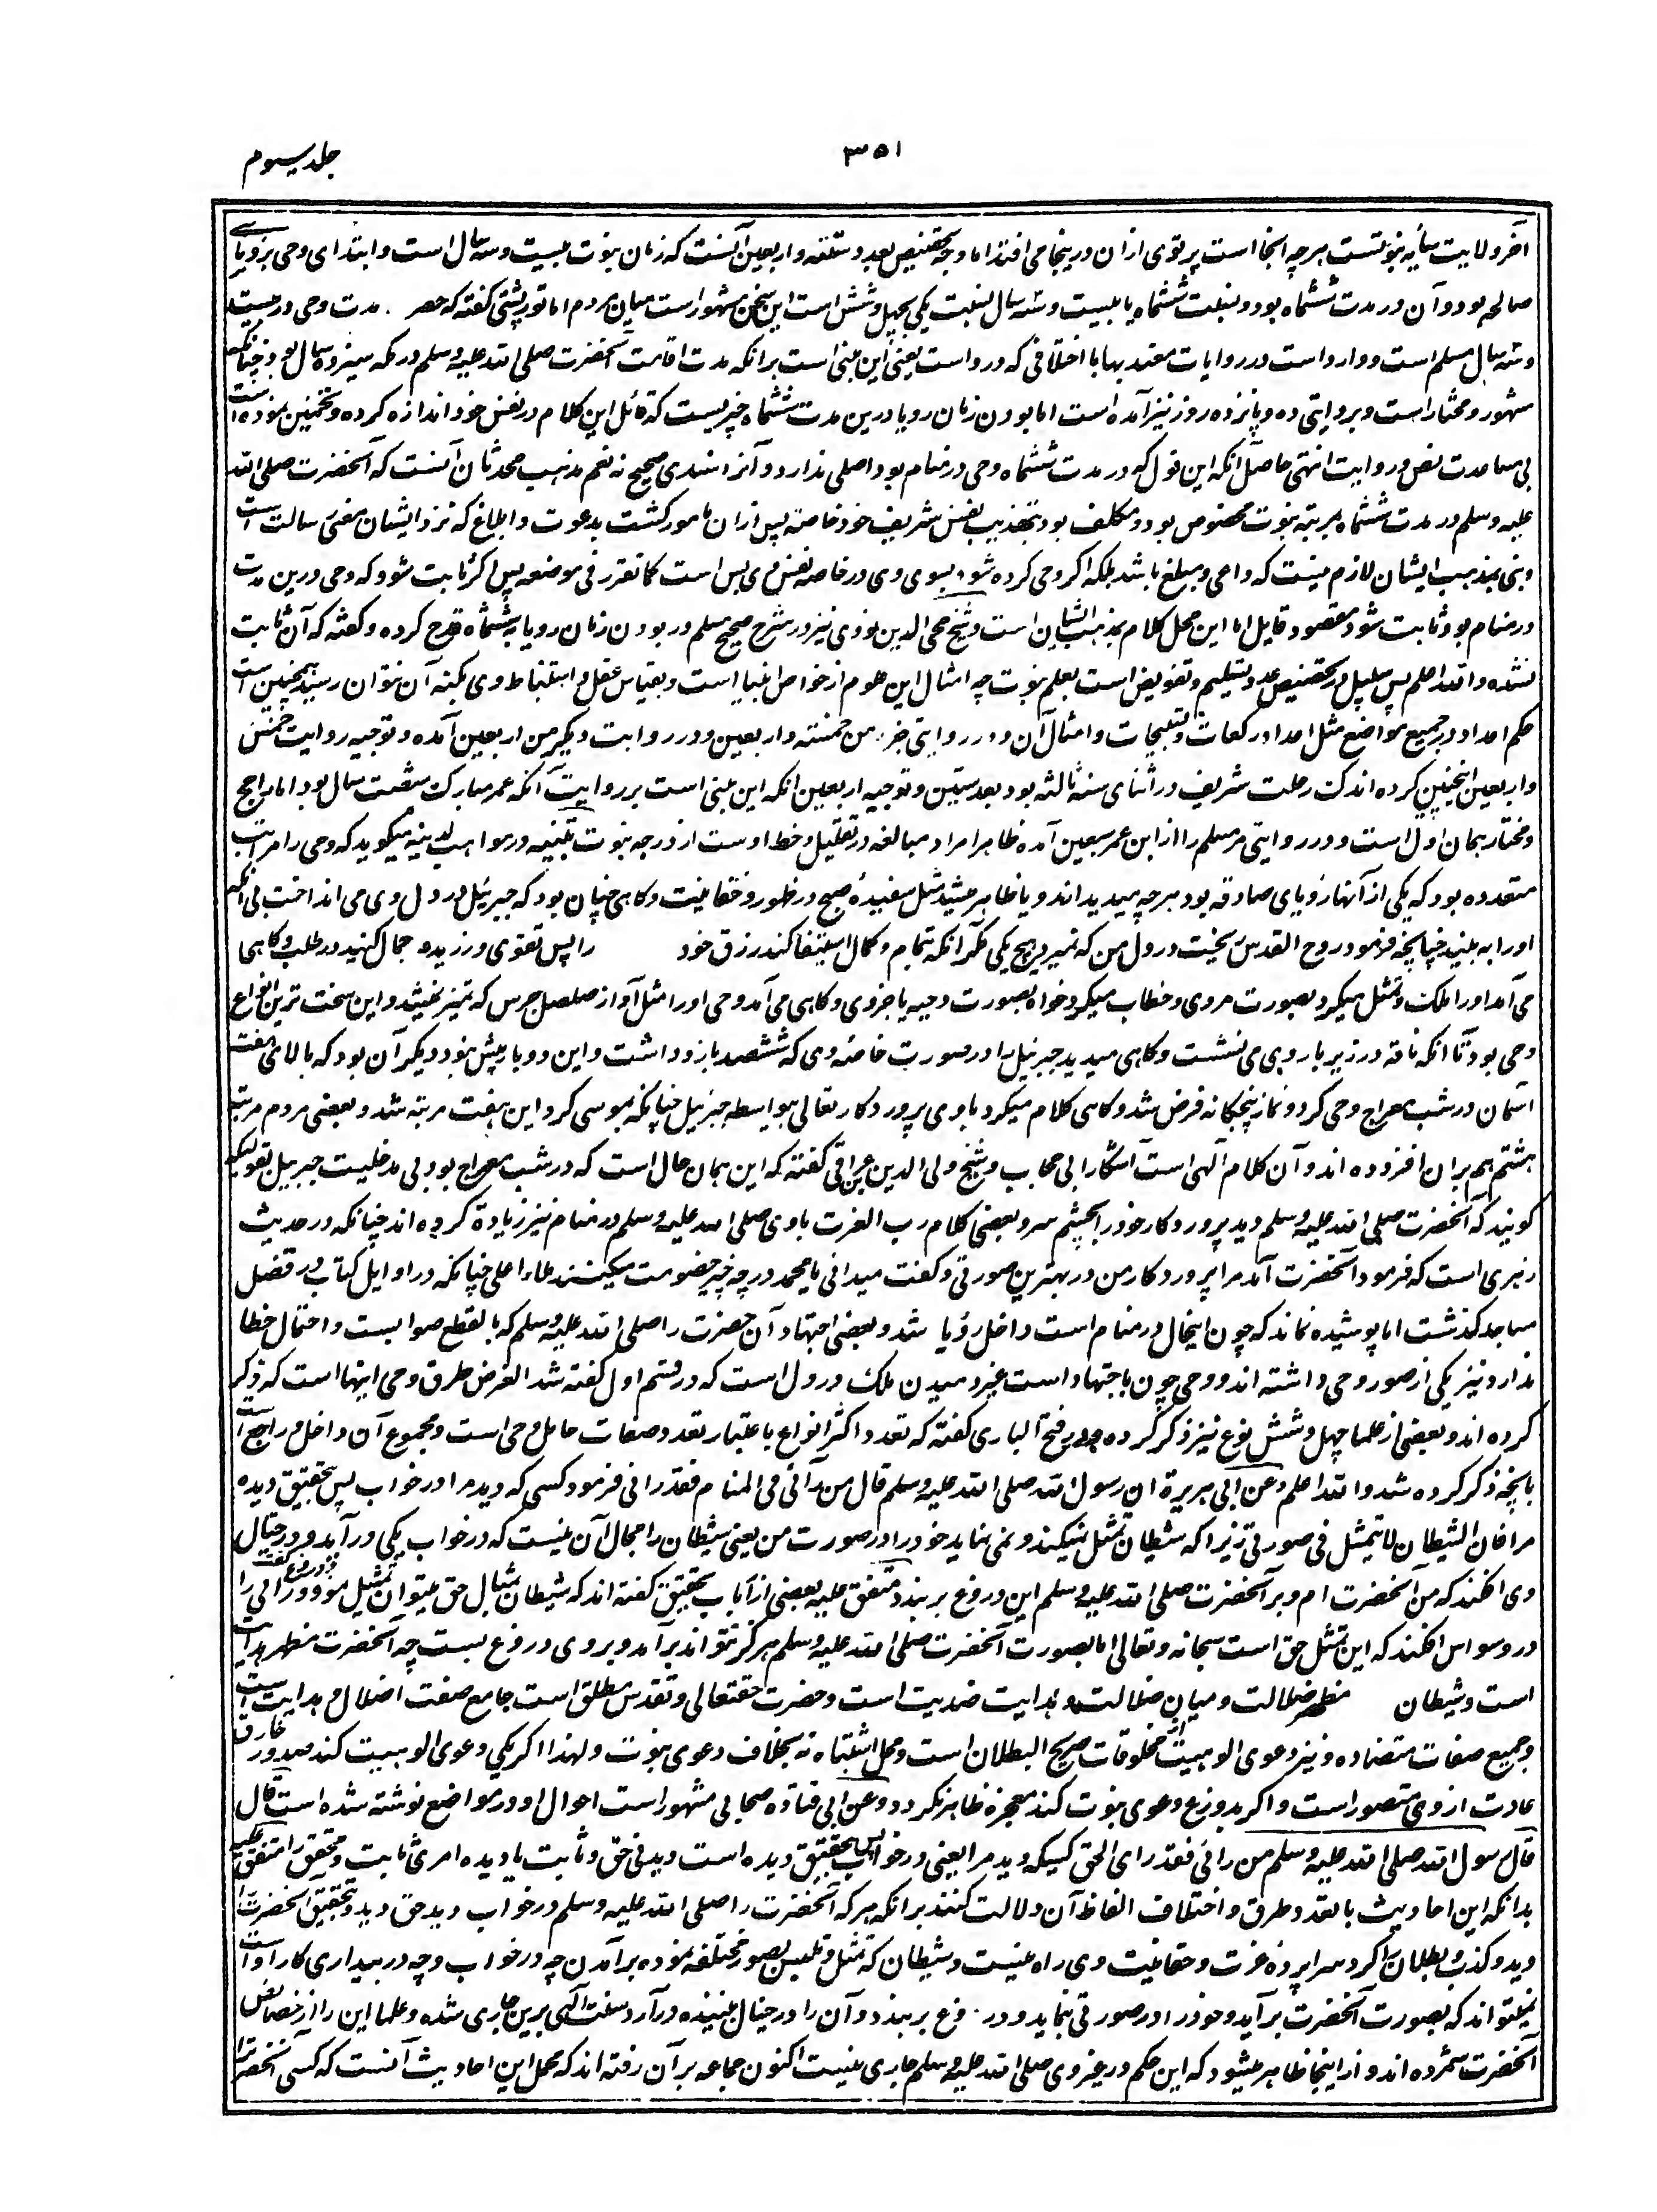 ۳۵۱
جلد سیوم
آخر ولایت سایه نبوتست هرچه آنجا است پرتوی ازان درینجا می افتد اما وجه تخصیص بعدد ستته واربعین آنست که زمان نبوت بیست وسه سال است وابتدای وحی برویای
صالحه بود وآن در مدت ششماه بود ونسبت ششماه با بیست وسه سال نسبت یکی بچهل وشش است این سخن مشهور است میان مردم اما تورپشتی گفته که حصر مدت وحی در بیست
وسه سال مسلم است ووارد است در روایات معتد بها با اختلافی که در واست یعنی این مبنی است برانکه مدت اقامت آنحضرت صلی الله علیه وسلم در مکه سیزده سال بود چنانکه
مشهور ومختار است وبروایتی ده وپانزده روز نیز آمده است اما بودن زمان رویا درین مدت ششماه چیزیست که قائل این کلام در نفس خود اندازه کرده وتخمین نموده است
بی مساعدت نص وروایت انتهی حاصل آنکه این قول که در مدت ششماه وحی در منام بود اصلی ندارد وآنرا سندی صحیح نه نعم مذهب محدثان آنست که آنحضرت صلی الله
علیه وسلم در مدت ششماه بمرتبه نبوت مخصوص بود ومکلف بود بتهذیب نفس شریف خود خاصة پس ازان مامور گشت بدعوت وابلاغ که نزد ایشان معنی رسالت است
ونبی بمذهب ایشان لازم نیست که داعی ومبلغ باشد بلکه اگر وحی کرده شود بسوی وی در خاصه نفس وی بس است کما تقرر فی موضعه پس اگر ثابت شود که وحی درین مدت
در منام بود ثابت شود مقصود قایل اما این محل کلام بمذهب ایشان است وشیخ محی الدین نووی نیز در شرح صحیح مسلم در بودن زمان رویا به ششماه قدح کرده وگفته که آن ثابت
نشده والله اعلم پس سبیل در تخصیص عدد تسلیم وتفویض است بعلم نبوت چه امثال این علوم از خواص انبیا است وبقیاس عقل واستنباط وی بکنه آن نتوان رسید همچنین است
حکم اعداد در جمیع مواضع مثل اعداد رکعات وتسبیحات وامثال آن ودر روایتی جزء من خمسته واربعین ودر روایت دیگر من اربعین آمده وتوجیه روایت خمس
واربعین اینچنین کرده اند که رحلت شریف در اثنای سنه ثالثه بود بعد ستین وتوجیه اربعین آنکه این مبنی است بر روایت آنکه عمر مبارک شصت سال بود اما راجح
ومختار همان اول است ودر روایتی مر مسلم را از ابن عمر سبعین آمده ظاهرا مراد مبالغه در تقلیل وخط اوست از درجه نبوت تنبیه در مواهب لدنیه میگوید که وحی را مراتب
متعدده بود که یکی از آنها رؤیای صادقه بود هرچه میدید اند ویا ظاهر میشد مثل سفیدهٔ صبح در ظهور وحقانیت وگاهی چنان بود که جبرئیل در دل وی می انداخت بی آنکه
او را به بیند چنانچه فرمود روح القدس ریخت در دل من که نمیرد هیچ یکی مگر آنکه تمام وکمال استیفا کند رزق خود را پس تقوی ورزید واجمال کنید در طلب وگاهی
می آمد او را ملک وتمثل میکرد بصورت مردی وخطاب میکرد خواه بصورت دحیه یا جزوی وگاهی می آمد وحی او را مثل آواز صلصل جرس که تمیز نمیشد واین سخت ترین انواع
وحی بود تا آنکه ناقه در زیر بار وی می نشست وگاهی میدید جبرئیل را در صورت خاصه وی که ششصد بازو داشت واین دو بار بیش نبود ودیگر آن بود که بالای هفت
آسمان در شب معراج وحی کرد ونماز پنجگانه فرض شد وگاهی کلام میکرد با وی پروردگار تعالی بیواسطه جبرئیل چنانکه بموسی کرد این هفت مرتبه شد وبعضی مردم مرتبه
هشتم هم بران افزوده اند وآن کلام آلهی است آشکارا بی حجاب وشیخ ولی الدین عراقی گفته که این همان حال است که در شب معراج بود بی مدخلیت جبرئیل بقولیکه
گویند که آنحضرت صلی الله علیه وسلم دید پروردگار خود را بچشم سر وبعضی کلام رب العزت با وی صلی الله علیه وسلم در منام نیز زیاده کرده اند چنانکه در حدیث
زهری است که فرمود آنحضرت آمد مرا پروردگار من در بهترین صورتی وگفت میدانی یا محمد در چه چیز خصومت میکنند ملاء اعلی چنانکه در اوایل کتاب در فضل
مساجد گذشت اما پوشیده نماند که چون اینحال در منام است داخل رؤیا شد وبعضی اجتهاد آن حضرت را صلی الله علیه وسلم که بالقطع صوابست واحتمال خطا
ندارد نیز یکی از صور وحی داشته اند ووحی چون باجتهاد است غیر دمیدن ملک در دل است که در قسم اول گفته شد الغرض طرق وحی اینها است که ذکر
کرده اند وبعضی از علما چهل وشش نوع نیز ذکر کرده ودر فتح الباری گفته که تعدد اکثر انواع باعتبار تعدد صفات حامل وحی است ومجموع آن داخل وراجع است
بانچه ذکر کرده شد والله اعلم وعن ابی هریرة ان رسول الله صلی الله علیه وسلم قال من رآنی فی المنام فقد رانی فرمود کسی که دید مرا در خواب پس بتحقیق دیده
مرا فان الشیطان لا یتمثل فی صورتی زیرا که شیطان تمثل نمیکند ونمی نماید خود را در صورت من یعنی شیطان را مجال آن نیست که در خواب یکی در آید ودر خیال
وی افگند که من آنحضرت ام وبر آنحضرت صلی الله علیه وسلم این دروغ بر بندد متفق علیه بعضی از ارباب تحقیق گفته اند که شیطان بمثال حق میتوان تمثیل نمود ودر رائی را
در وسواس افگند که این تمثل حق است سبحانه وتعالی اما بصورت آنحضرت صلی الله علیه وسلم هرگز نتواند برآمد وبر وی دروغ بست چه آنحضرت مظهر هدایت
است وشیطان مظهر ضلالت ومیان ضلالت وهدایت ضدیت است وحضرت حقتعالی وتقدس مطلق است جامع صفت اضلال وهدایت است
وجمیع صفات متضاده ونیز دعوی الوهیت از مخلوقات صریح البطلان است ومحل اشتباه نه بخلاف دعوی نبوت ولهذا اگر یکی دعوی الوهیت کند صدور خارق
عادت از وی متصور است واگر بدروغ دعوی نبوت کند معجزه ظاهر نگردد وعن ابی قتاده صحابی مشهور است احوال او در مواضع نوشته شده است قال
قال رسول الله صلی الله علیه وسلم من رانی فقد رای الحق کسیکه دید مرا یعنی در خواب پس بتحقیق دیده است دیدنی حق وثابت یا دیده امری ثابت ومحقق را متفق علیه
بدانکه این احادیث با تعدد طرق واختلاف الفاظ آن دلالت کنند برانکه هر که آنحضرت را صلی الله علیه وسلم در خواب دید حق دید وبتحقیق آنحضرت را
دید وکذب وبطلان را گرد سراپرده عزت وحقانیت وی راه نیست وشیطان که تمثل وتلبس بصور مختلفه نموده برآمدن چه در خواب وچه در بیداری کار اوست
نمیتواند که بصورت آنحضرت برآید وخود را در صورتی بنماید ودروغ بر بندد وآن را در خیال بیننده در آرد سنت آلهی برین جاری شده وعلما این را از خصائص
آنحضرت شمرده اند واز اینجا ظاهر میشود که این حکم در غیر وی صلی الله علیه وسلم جاری نیست اکنون جماعه برآن رفته اند که محمل این احادیث آنست که کسی آنحضرت را